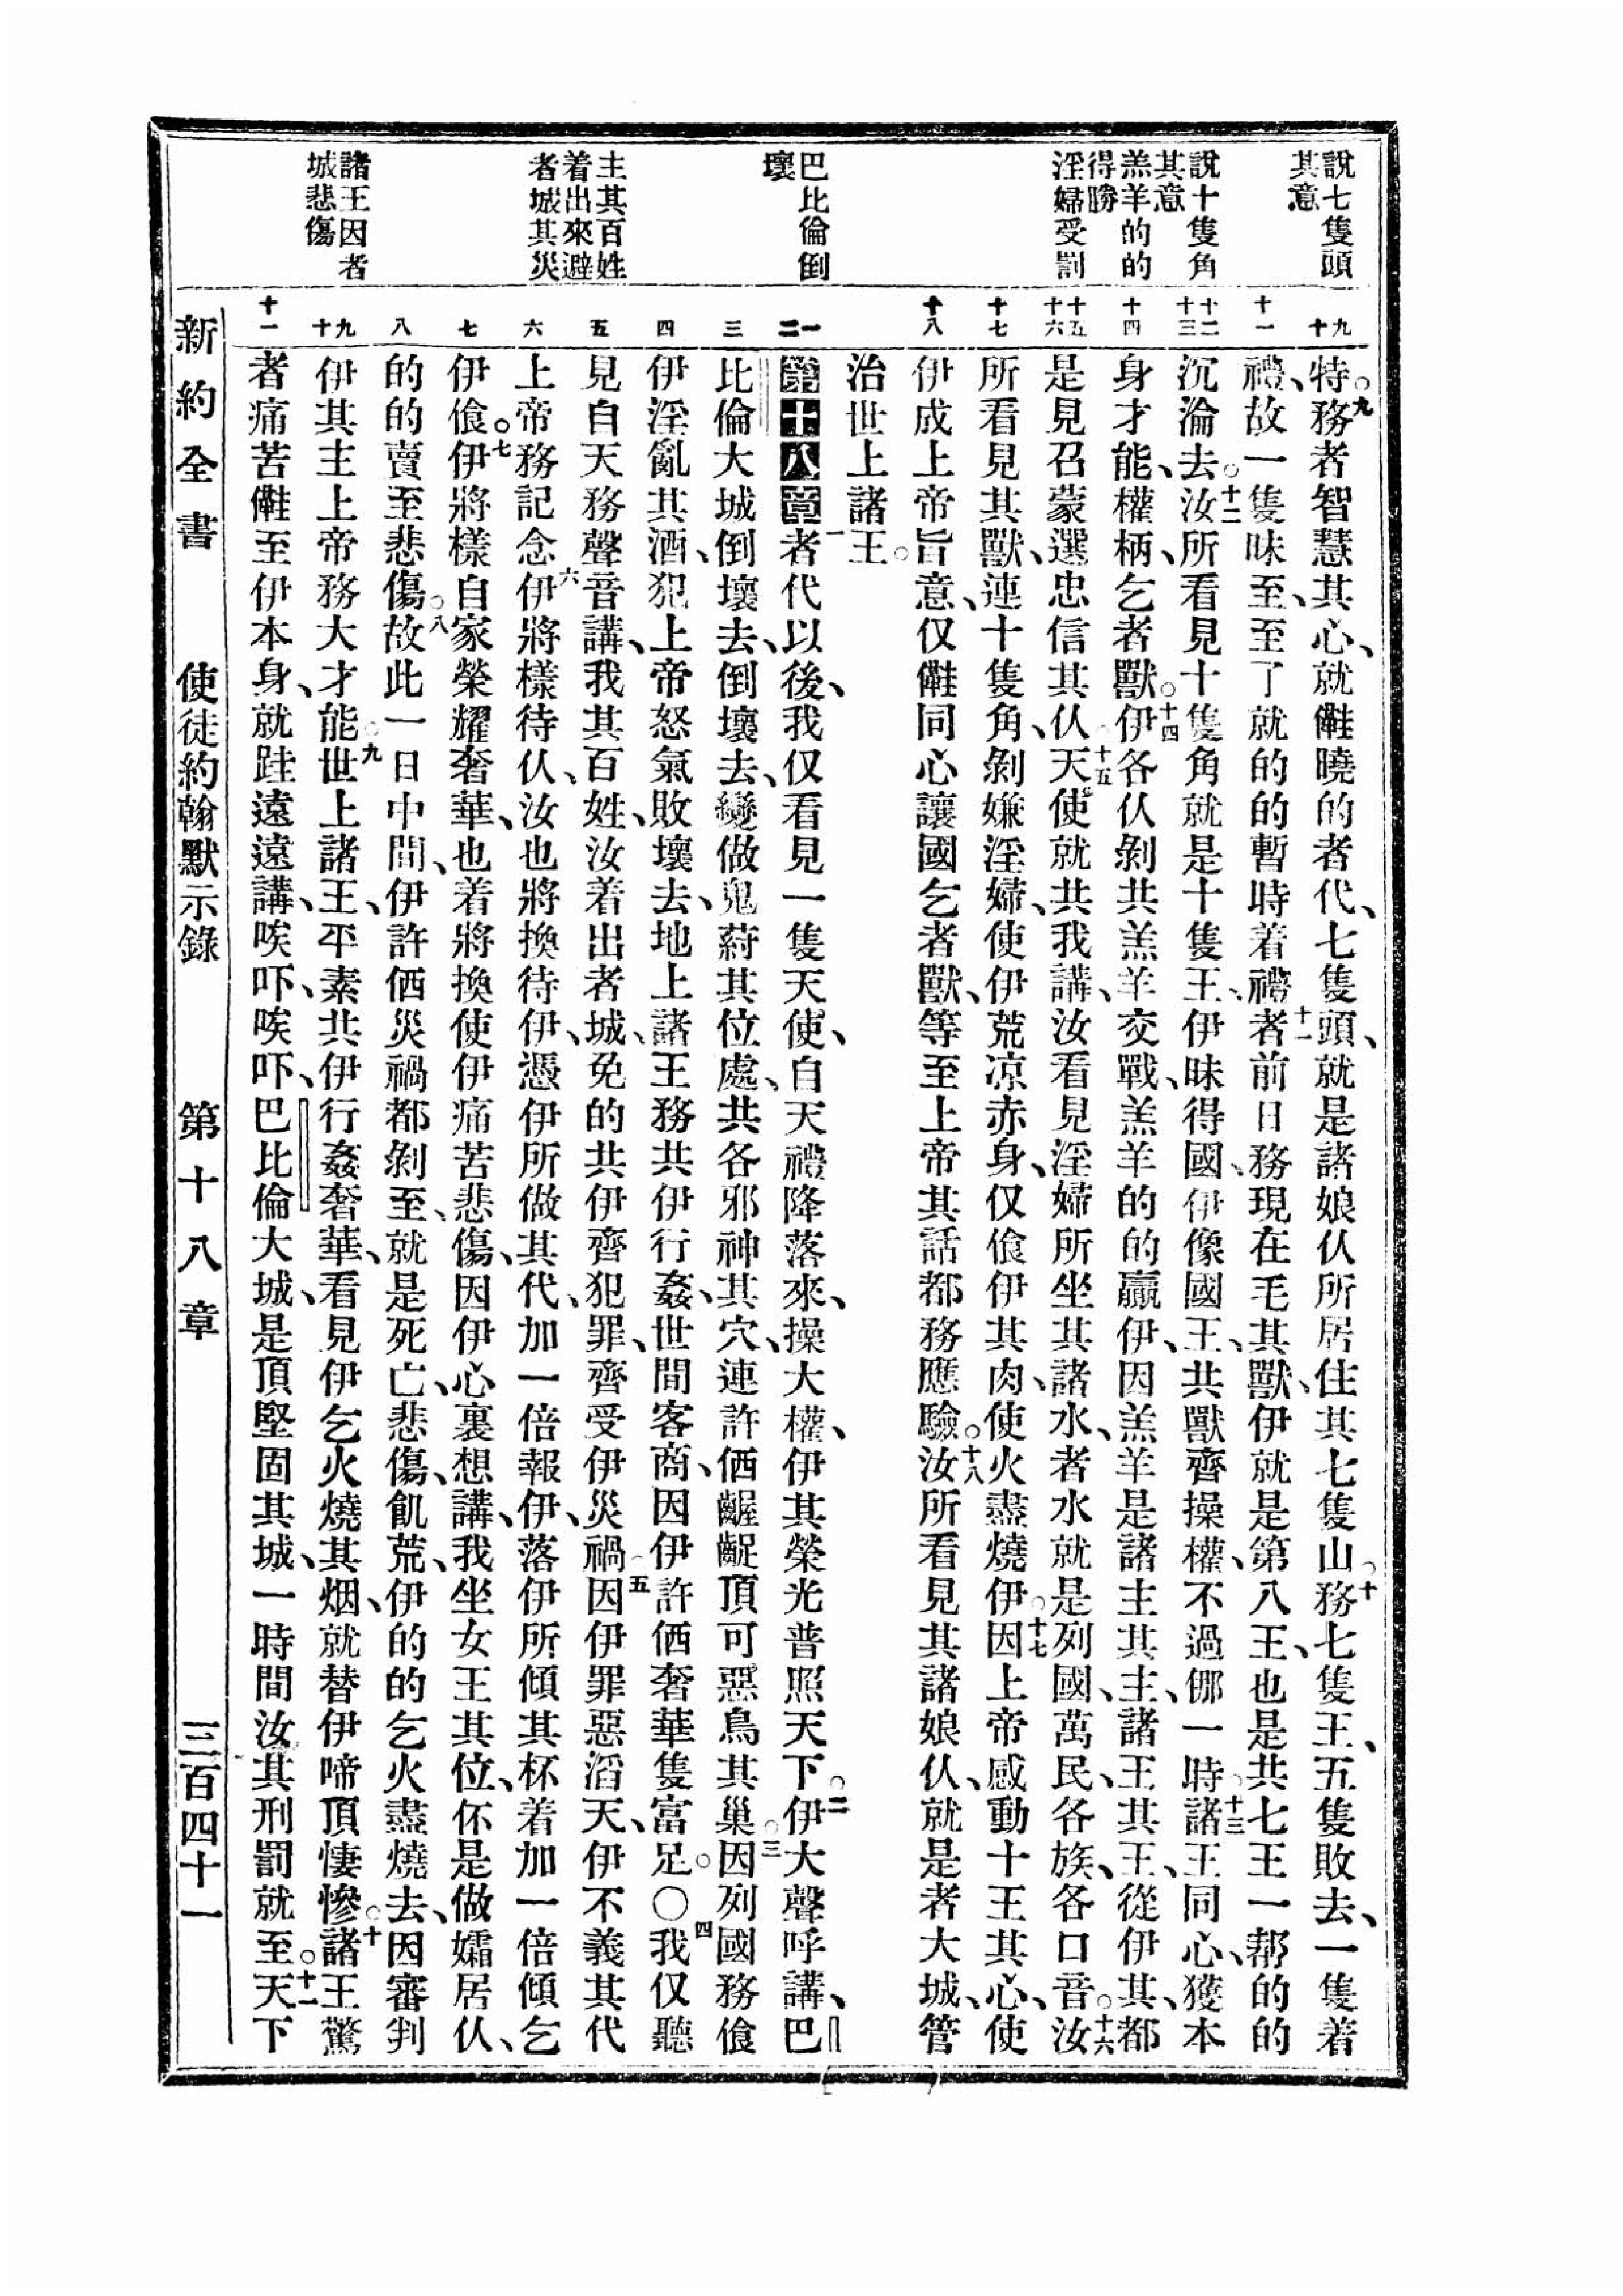 說七隻頭
其意
說十隻角
其意
羔羊的的
得勝
淫婦受罰
巴比倫倒
壞
主其百姓
着出來避
者城其災
諸王因者
城悲傷
九
十
十一
十二
十三
十四
十五
十六
十七
十八
一
二
三
四
五
六
七
八
九
十
十一
特。九務者智慧其心、就㒁曉的者代、七隻頭、就是諸娘仈所居住其七隻山。十務七隻王、五隻敗去、一隻着
禮、故一隻昧至、至了就的的暫時着禮十一者前日務現在毛其獸、伊就是第八王、也是共七王一帮的的
沉淪去。十二汝所看見十隻角就是十隻王、伊昧得國、伊像國王、共獸齊操權、不過𠎀一時。十三諸王同心、獲本
身才能、權柄、乞者獸。十四伊各仈剝共羔羊交戰、羔羊的的贏伊、因羔羊是諸主其主、諸王其王、從伊其、都
是見召蒙選忠信其仈。十五天使就共我講、汝看見淫婦所坐其諸水、者水就是列國、萬民、各族、各口音。十六汝
所看見其獸、連十隻角、剝嫌淫婦、使伊荒凉赤身、仅飡伊其肉、使火盡燒伊。十七因上帝感動十王其心、使
伊成上帝旨意、仅㒁同心讓國乞者獸、等至上帝其話都務應驗。十八汝所看見其諸娘仈、就是者大城、管
治世上諸王。
第十八章一者代以後、我仅看見一隻天使、自天禮降落來、操大權、伊其榮光普照天下。二伊大聲呼講、巴
比倫大城倒壞去、倒壞去、變做鬼蔚其位處、共各邪神其穴、連許価齷齪頂可惡鳥其巢。三因列國務飡
伊淫亂其酒、犯上帝怒氣敗壞去、地上諸王務共伊行姦、世間客商、因伊許価奢華隻富足。〇四我仅聽
見自天務聲音講、我其百姓、汝着出者城、免的共伊齊犯罪、齊受伊災禍五因伊罪惡滔天、伊不義其代
上帝務記念伊六將樣待仈、汝也將換待伊、憑伊所做其代、加一倍報伊、落伊所傾其杯着加一倍傾乞
伊飡。七伊將樣自家榮耀奢華、也着將換使伊痛苦悲傷、因伊心裏想講、我坐女王其位、伓是做孀居仈、
的的賣至悲傷。八故此一日中間、伊許価災禍都剝至、就是死亡、悲傷、飢荒、伊的的乞火盡燒去、因審判
伊其主上帝務大才能。九世上諸王、平素共伊行姦奢華、看見伊乞火燒其烟、就替伊啼頂悽慘。十諸王驚
者痛苦㒁至伊本身、就跬遠遠講、唉吓、唉吓、巴比倫大城、是頂堅固其城、一時間汝其刑罰就至。十一天下
新約全書　使徒約翰默示錄　第十八章　三百四十一